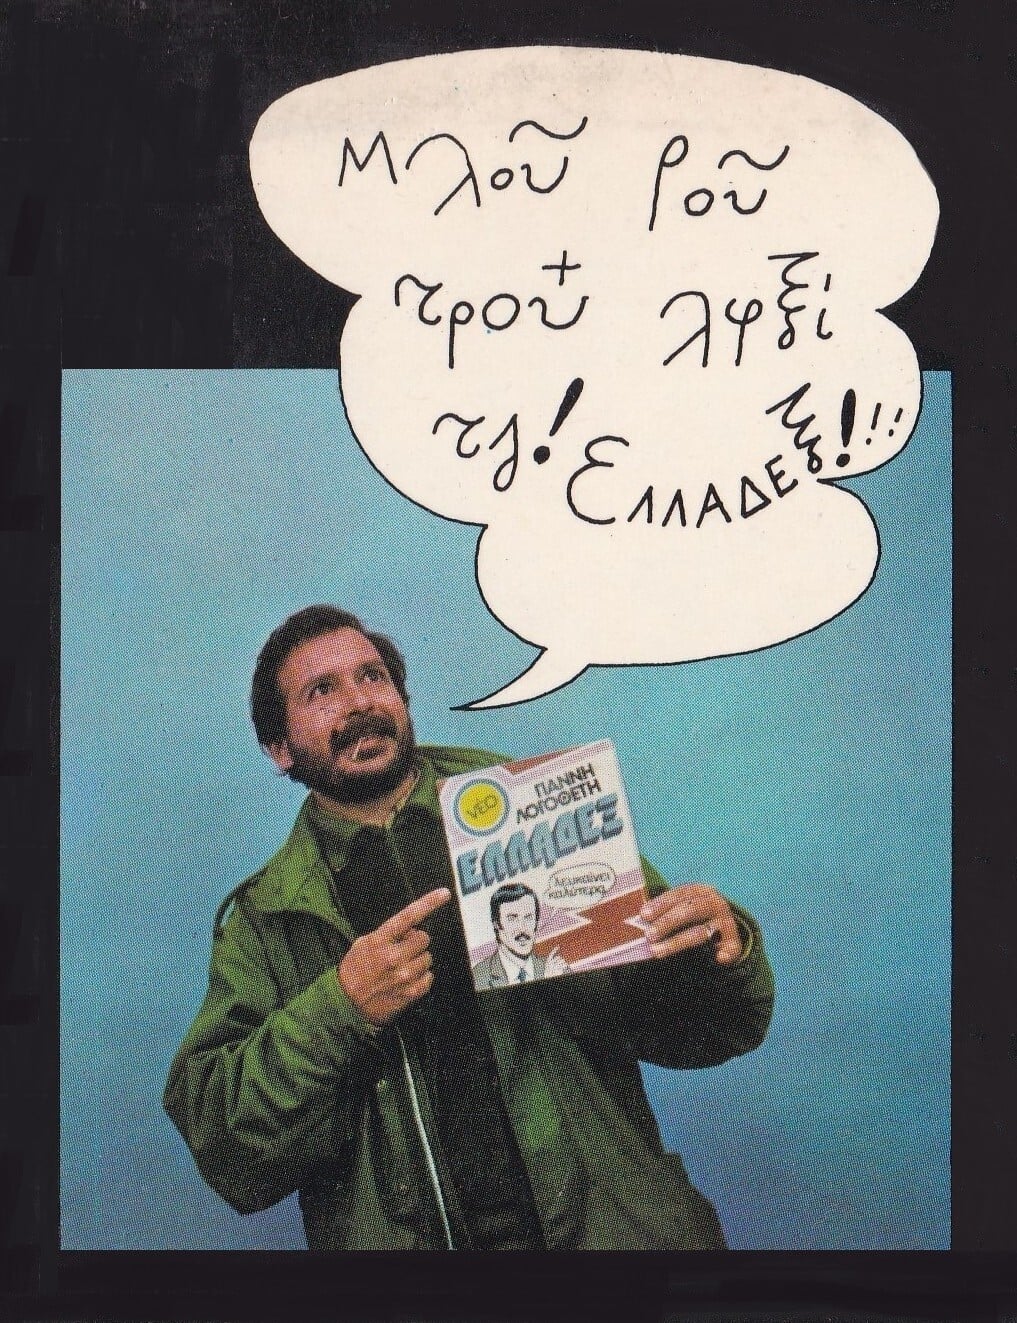 Μλοῦ ροῦ
τρου λψξί
τζ! Ελλαδεξ!!!!
νέο
ΓΙΑΝΝΗ
ΛΟΓΟΘΕΤΗ
ΕΛΛΑΔΕΞ
λευκαίνει
καλύτερα